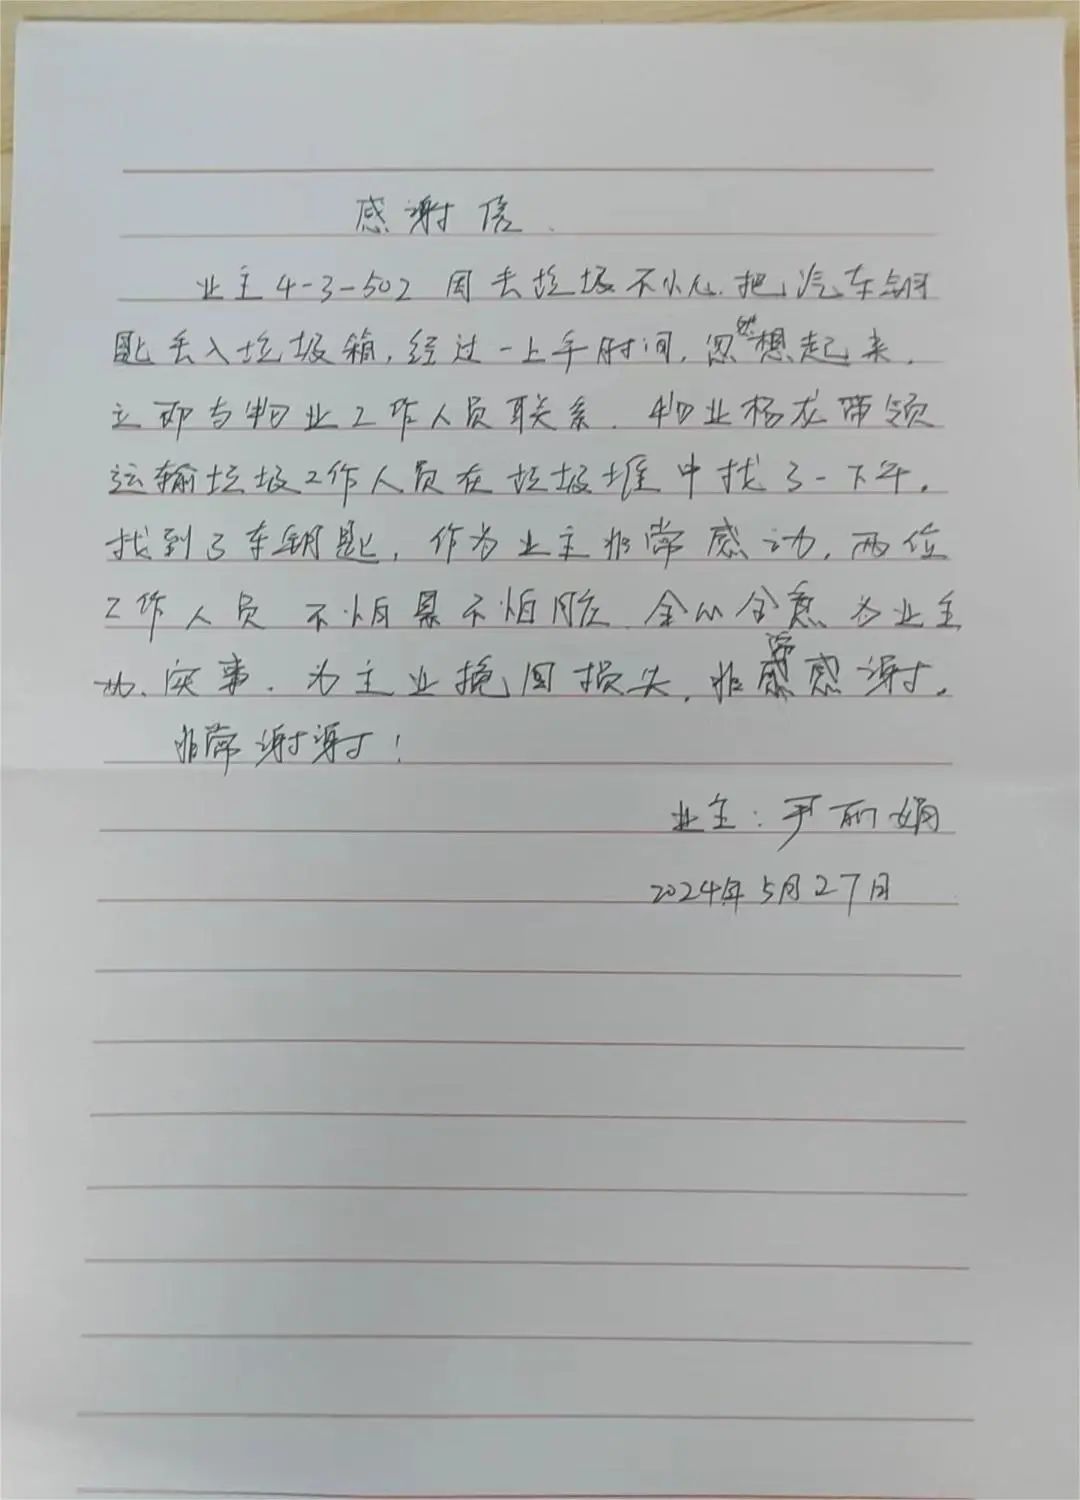 感谢信.
业主4-3-502 因丢垃圾不小心.把汽车钥
匙丢入垃圾箱,经过一上午时间,忽然想起来.
立即与物业工作人员联系.物业杨龙带领
运输垃圾工作人员在垃圾堆中找了一下午.
找到了车钥匙,作为业主非常感动.两位
工作人员 不怕累不怕脏.全心全意为业主
办实事.为主业挽回损失.非常感谢.
非常谢谢!
业主:尹丽娟
2024年5月27日